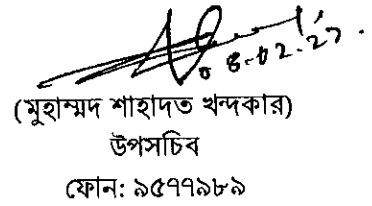 08.02.27.
(মুহাম্মদ শাহাদত খন্দকার)
উপসচিব
ফোন: ৯৫৭৭৯৮৯